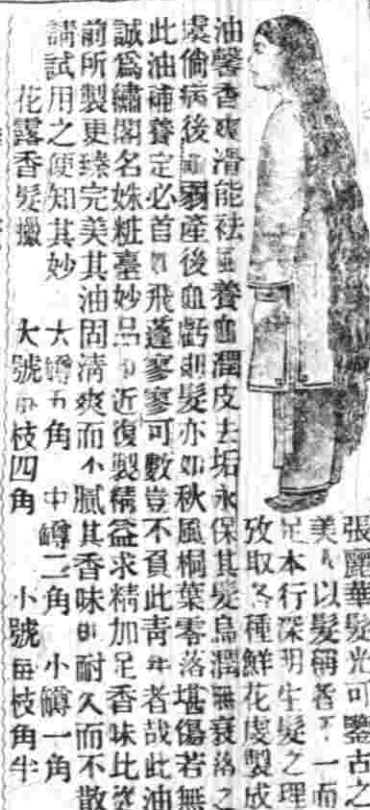 張麗華髮光可鑒古之
美人以髮稱者不一而
足本行深明生髮之理
攷取各種鮮花虔製成
油馨香爽滑能袪風養血潤皮去垢永保其髮烏潤無衰落之
虞倘病後血弱產後血虧則髮亦如秋風桐葉零落堪傷若無
此油補養定必首如飛蓬寥寥可數豈不負此青年者哉此油
誠爲繡閣名姝粧臺妙品也近復製精益求精加足香味比從
前所製更臻完美其油固清爽而不膩其香味即耐久而不散
請試用之便知其妙 大罇五角 中罇二角 小罇一角
花露香髮 大號每枝四角 小號每枝角半